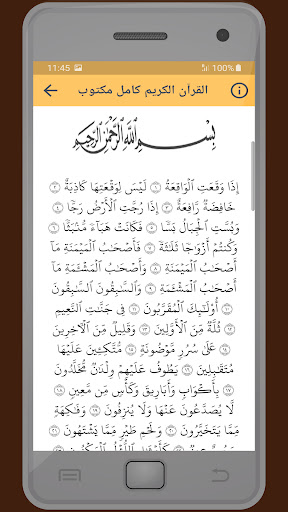 11:45 100%
القرآن الكريم كامل مكتوب
بِسْمِ ٱللَّهِ ٱلرَّحْمَٰنِ ٱلرَّحِيمِ
إِذَا وَقَعَتِ ٱلْوَاقِعَةُ ١ لَيْسَ لِوَقْعَتِهَا كَاذِبَةٌ ٢
خَافِضَةٌ رَّافِعَةٌ ٣ إِذَا رُجَّتِ ٱلْأَرْضُ رَجًّا ٤
وَبُسَّتِ ٱلْجِبَالُ بَسًّا ٥ فَكَانَتْ هَبَآءً مُّنۢبَثًّا ٦
وَكُنتُمْ أَزْوَٰجًا ثَلَٰثَةً ٧ فَأَصْحَٰبُ ٱلْمَيْمَنَةِ مَآ
أَصْحَٰبُ ٱلْمَيْمَنَةِ ٨ وَأَصْحَٰبُ ٱلْمَشْـَٔمَةِ مَآ
أَصْحَٰبُ ٱلْمَشْـَٔمَةِ ٩ وَٱلسَّٰبِقُونَ ٱلسَّٰبِقُونَ ١٠
أُو۟لَٰٓئِكَ ٱلْمُقَرَّبُونَ ١١ فِى جَنَّٰتِ ٱلنَّعِيمِ ١٢
ثُلَّةٌ مِّنَ ٱلْأَوَّلِينَ ١٣ وَقَلِيلٌ مِّنَ ٱلْءَاخِرِينَ ١٤
عَلَىٰ سُرُرٍ مَّوْضُونَةٍ ١٥ مُّتَّكِـِٔينَ عَلَيْهَا
مُتَقَٰبِلِينَ ١٦ يَطُوفُ عَلَيْهِمْ وِلْدَٰنٌ مُّخَلَّدُونَ ١٧
بِأَكْوَابٍ وَأَبَارِيقَ وَكَأْسٍ مِّن مَّعِينٍ ١٨
لَّا يُصَدَّعُونَ عَنْهَا وَلَا يُنزِفُونَ ١٩ وَفَٰكِهَةٍ
مِّمَّا يَتَخَيَّرُونَ ٢٠ وَلَحْمِ طَيْرٍ مِّمَّا يَشْتَهُونَ ٢١